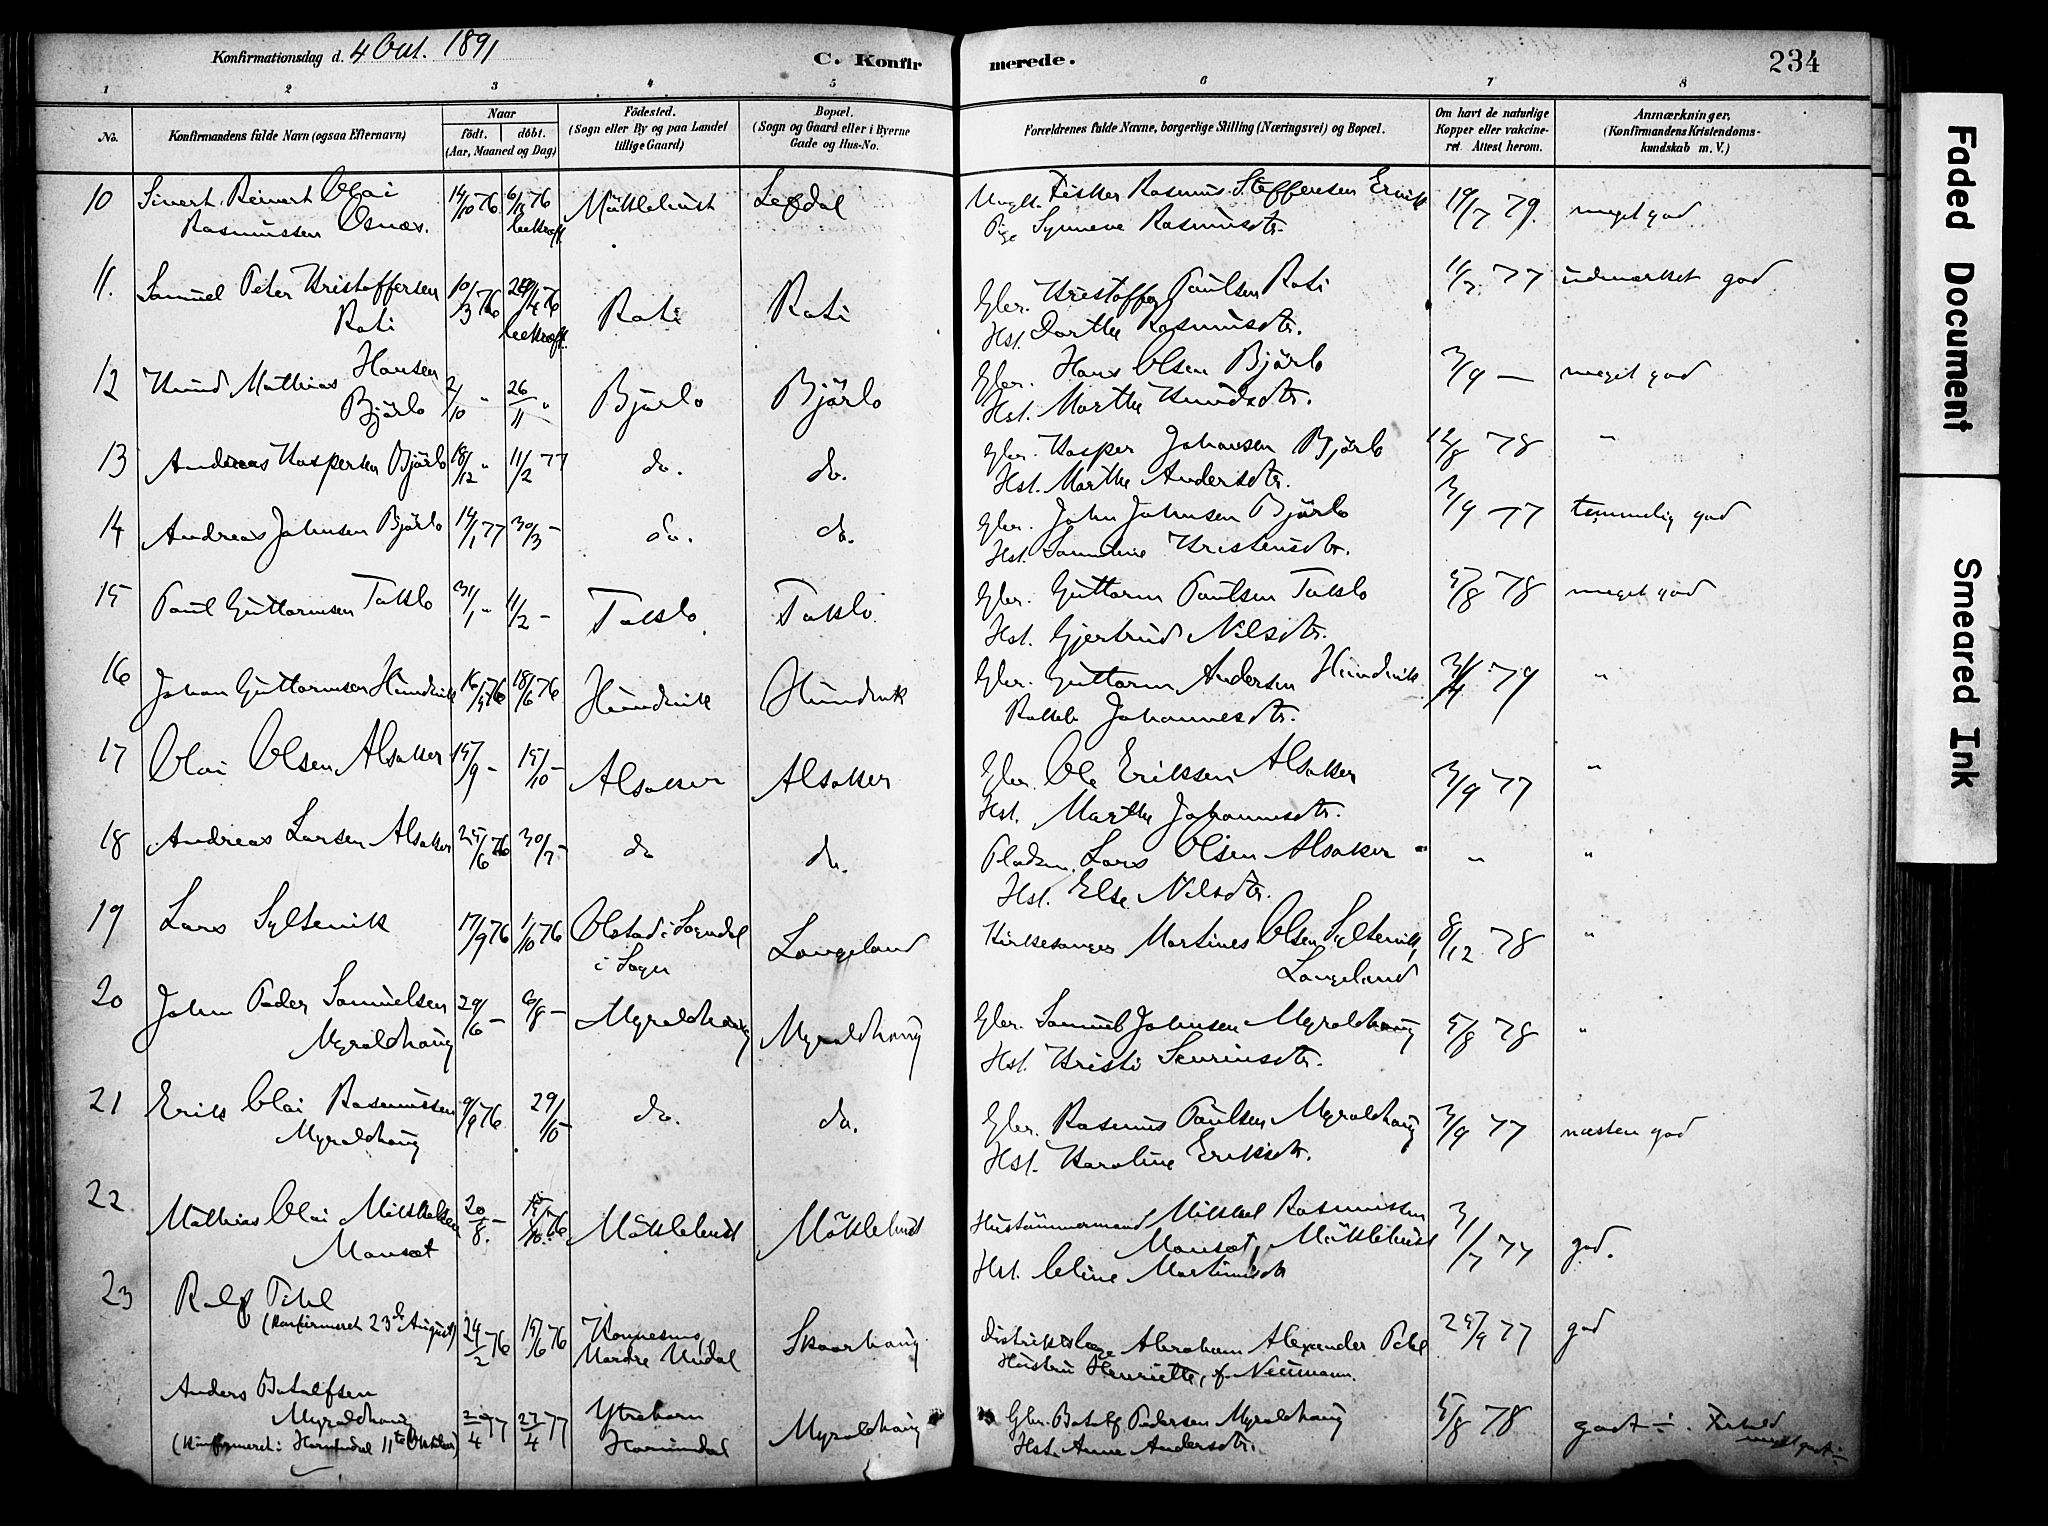 Konfirmationsdag d. 4 Oct. 1891
C. Konfirmerede.
234
1 2 3 4 5 6 7 8
No.
Konfirmandens fulde Navn (ogsaa Efternavn)
Naar
födt. döbt.
(Aar, Maaned og Dag)
Födested.
(Sogn eller By og paa Landet
tillige Gaard)
Bopæl.
(Sogn og Gaard eller i Byerne
Gade og Hus-No.
Forældrenes fulde Navne, borgerlige Stilling (Næringsvei) og Bopæl.
Om havt de naturlige
Kopper eller vakcine-
ret. Attest herom.
Anmærkninger,
(Konfirmandens Kristendoms-
kundskab m. V.)
10 Sivert Reinert Olai 14/10 76 6/12 76 Möklebust Lefdal Ungk. Fisker Rasmus Steffensen Ervik 19/7 79. meget god
Rasmussen Osnæs. Pige Synneve Rasmusdtr.
11. Samuel Peter Kristoffersen 10/3 76 Roti Roti Gbr. Kristoffer Paulsen Roti 77 udmærket god
Roti Hst. Dorthe Rasmusdtr.
12 Knud Mathias Hansen 2/10 " 26/11 " Bjørlo Bjørlo Gbr. Hans Olsen Bjørlo 3/9 — meget god
Bjørlo Hst. Marthe Knudsdtr.
13 Andreas Kaspersen Bjørlo 18/12 " 11/2 77 do. do. Gbr. Kasper Johansen Bjørlo 12/8 78 "
Hst. Marthe Andersdtr.
14 Andreas Johnsen Bjørlo 14/1 77 30/3 - do. do. Gbr. John Johnsen Bjørlo 3/9 77 temmelig god
Hst. Samuline Kristensdtr.
15 Paul Guttormsen Taklo 31/1 " 11/2 - Taklo Taklo Gbr. Guttorm Paulsen Taklo 5/8 78 meget god
Hst. Gjertrud Nilsdtr.
16 Johan Guttormsen Hundvik 18/6 76 Hundvik Hundvik Gbr. Guttorm Andersen Hundvik 79 "
Johannesdtr.
17 Olai Olsen Alsaker 15/9 - 15/10 - Alsaker Alsaker Gbr. Ole Eriksen Alsaker 3/9 77 "
Hst. Marthe Johannesdtr.
18 Andreas Larsen Alsaker 25/6 76 30/7 - do do. Pladsm. Lars Olsen Alsaker " " "
Hst. Else Nilsdtr.
19 Lars Syltevik 17/9 76 1/10 76 Olstad i Sogndal Langeland Kirkesanger Martines Olsen Syltevik, 8/12 78 "
i Sogn Langeland
20 John Peder Samuelsen 29/6 - 6/8 - Myroldhaug Myroldhaug Gbr. Samuel Johnsen Myroldhaug 5/8 78 "
Myroldhaug Hst. Kristi Severinsdtr.
21 Erik Olai Rasmussen 9/9 76 29/10 do. do. Gbr. Rasmus Paulsen Myroldhaug 3/9 77 næsten god
Myroldhaug Hst. Karoline Eriksdtr.
22 Mathias Olai Mikkelsen 20/8 - 15/10 76 Möklebust Möklebust Hustømmermand Mikkel Rasmussen 3/7 77 god.
Monset Monset, Möklebust
Hst. Oline Martinusdtr
23 Rolf Pihl
(Konfirmeret 23de August) 24/2 76 15/6 76 Konnesmo, Nordre Undal Skaarhaug Distriktslæge Abraham Alexander Pihl 25/9 77 god
Hustru Henriette, f. Neumann.
Anders Botolfsen
Myroldhaug
(Konfirmeret i Hornindal 11te Oktober) 2/4 77 27/4 77 Ytrehorn Hornindal Myroldhaug Gbr. Botolf Pedersen Myroldhaug 5/8 78 godt ÷. Forhold meget godt ÷
Hst. Anne Andersdtr.
Faded Document
Smeared Ink